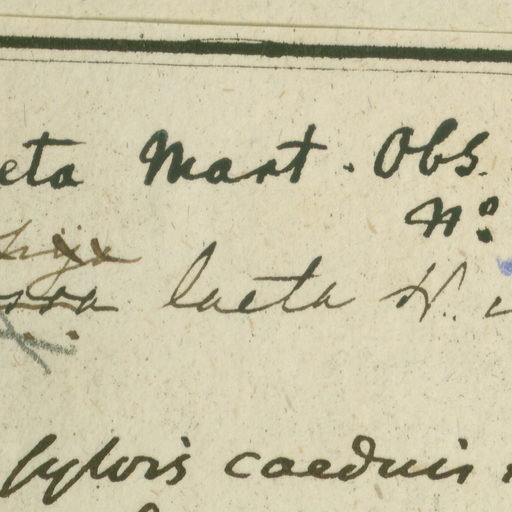 eta Mart. Obs.
No
laeta
sylvis caeduis